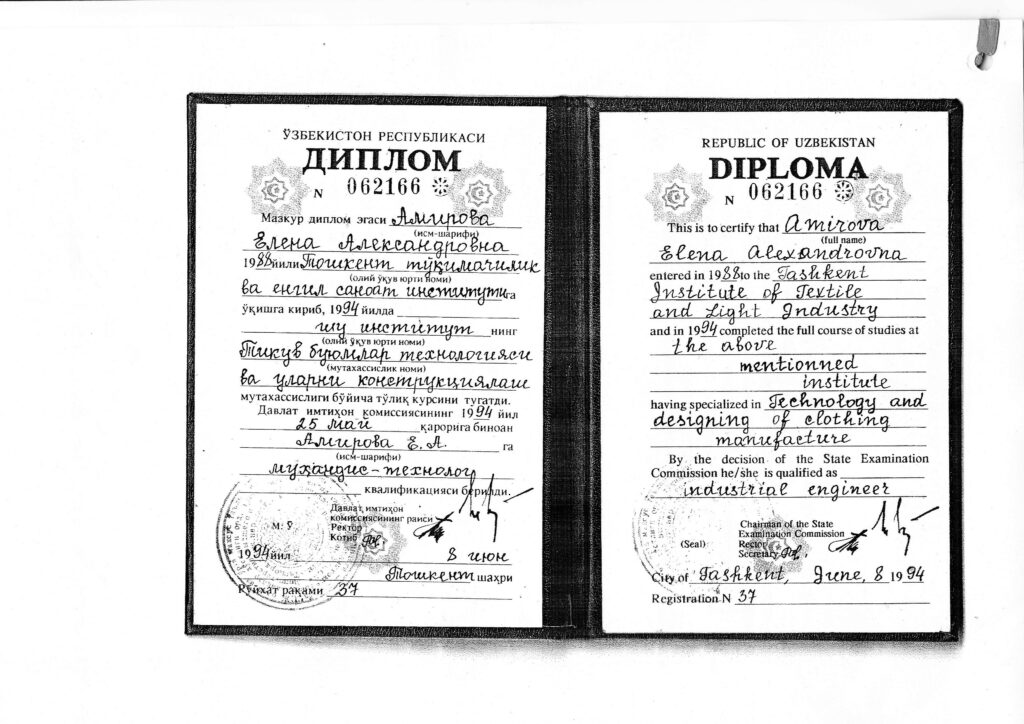 ЎЗБЕКИСТОН РЕСПУБЛИКАСИ
ДИПЛОМ
N 062166
Мазкур диплом эгаси Амирова
(исм-шарифи)
Елена Александровна
1988йили Тошкент тўқимачилик
(олий ўқув юрти номи)
ва енгил саноат институтига
ўқишга кириб, 1994 йилда
шу институт нинг
(олий ўқув юрти номи)
Тикув буюмлар технологияси
(мутахассислик номи)
ва уларни конструкциялаш
мутахассислиги бўйича тўлиқ курсини тугатди.
Давлат имтиҳон комиссиясининг 1994 йил
25 май қарорига биноан
Амирова Е.А. га
(исм-шарифи)
муҳандис-технолог
квалификацияси берилди.
Давлат имтиҳон
комиссиясининг раиси
М. Ў
Ректор
Котиб
1994йил 8 июн
Тошкент шаҳри
Рўйхат рақами 37
REPUBLIC OF UZBEKISTAN
DIPLOMA
N 062166
This is to certify that Amirova
(full name)
Elena Alexandrovna
entered in 1988 to the Tashkent
Institute of Textile
and Light Industry
and in 1994 completed the full course of studies at
the above
mentionned
institute
having specialized in Technology and
designing of clothing
manufacture
By the decision of the State Examination
Commission he/she is qualified as
industrial engineer
Chairman of the State
Examination Commission
(Seal) Rector
Secretary
City of Tashkent, June, 8 1994
Registration N 37